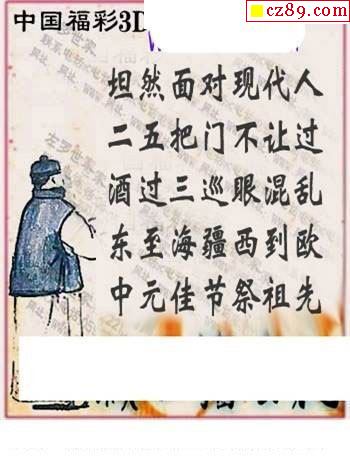 中国福彩3D
cz89.com
坦然面对现代人
二五把门不让过
酒过三巡眼混乱
东至海疆西到欧
中元佳节祭祖先